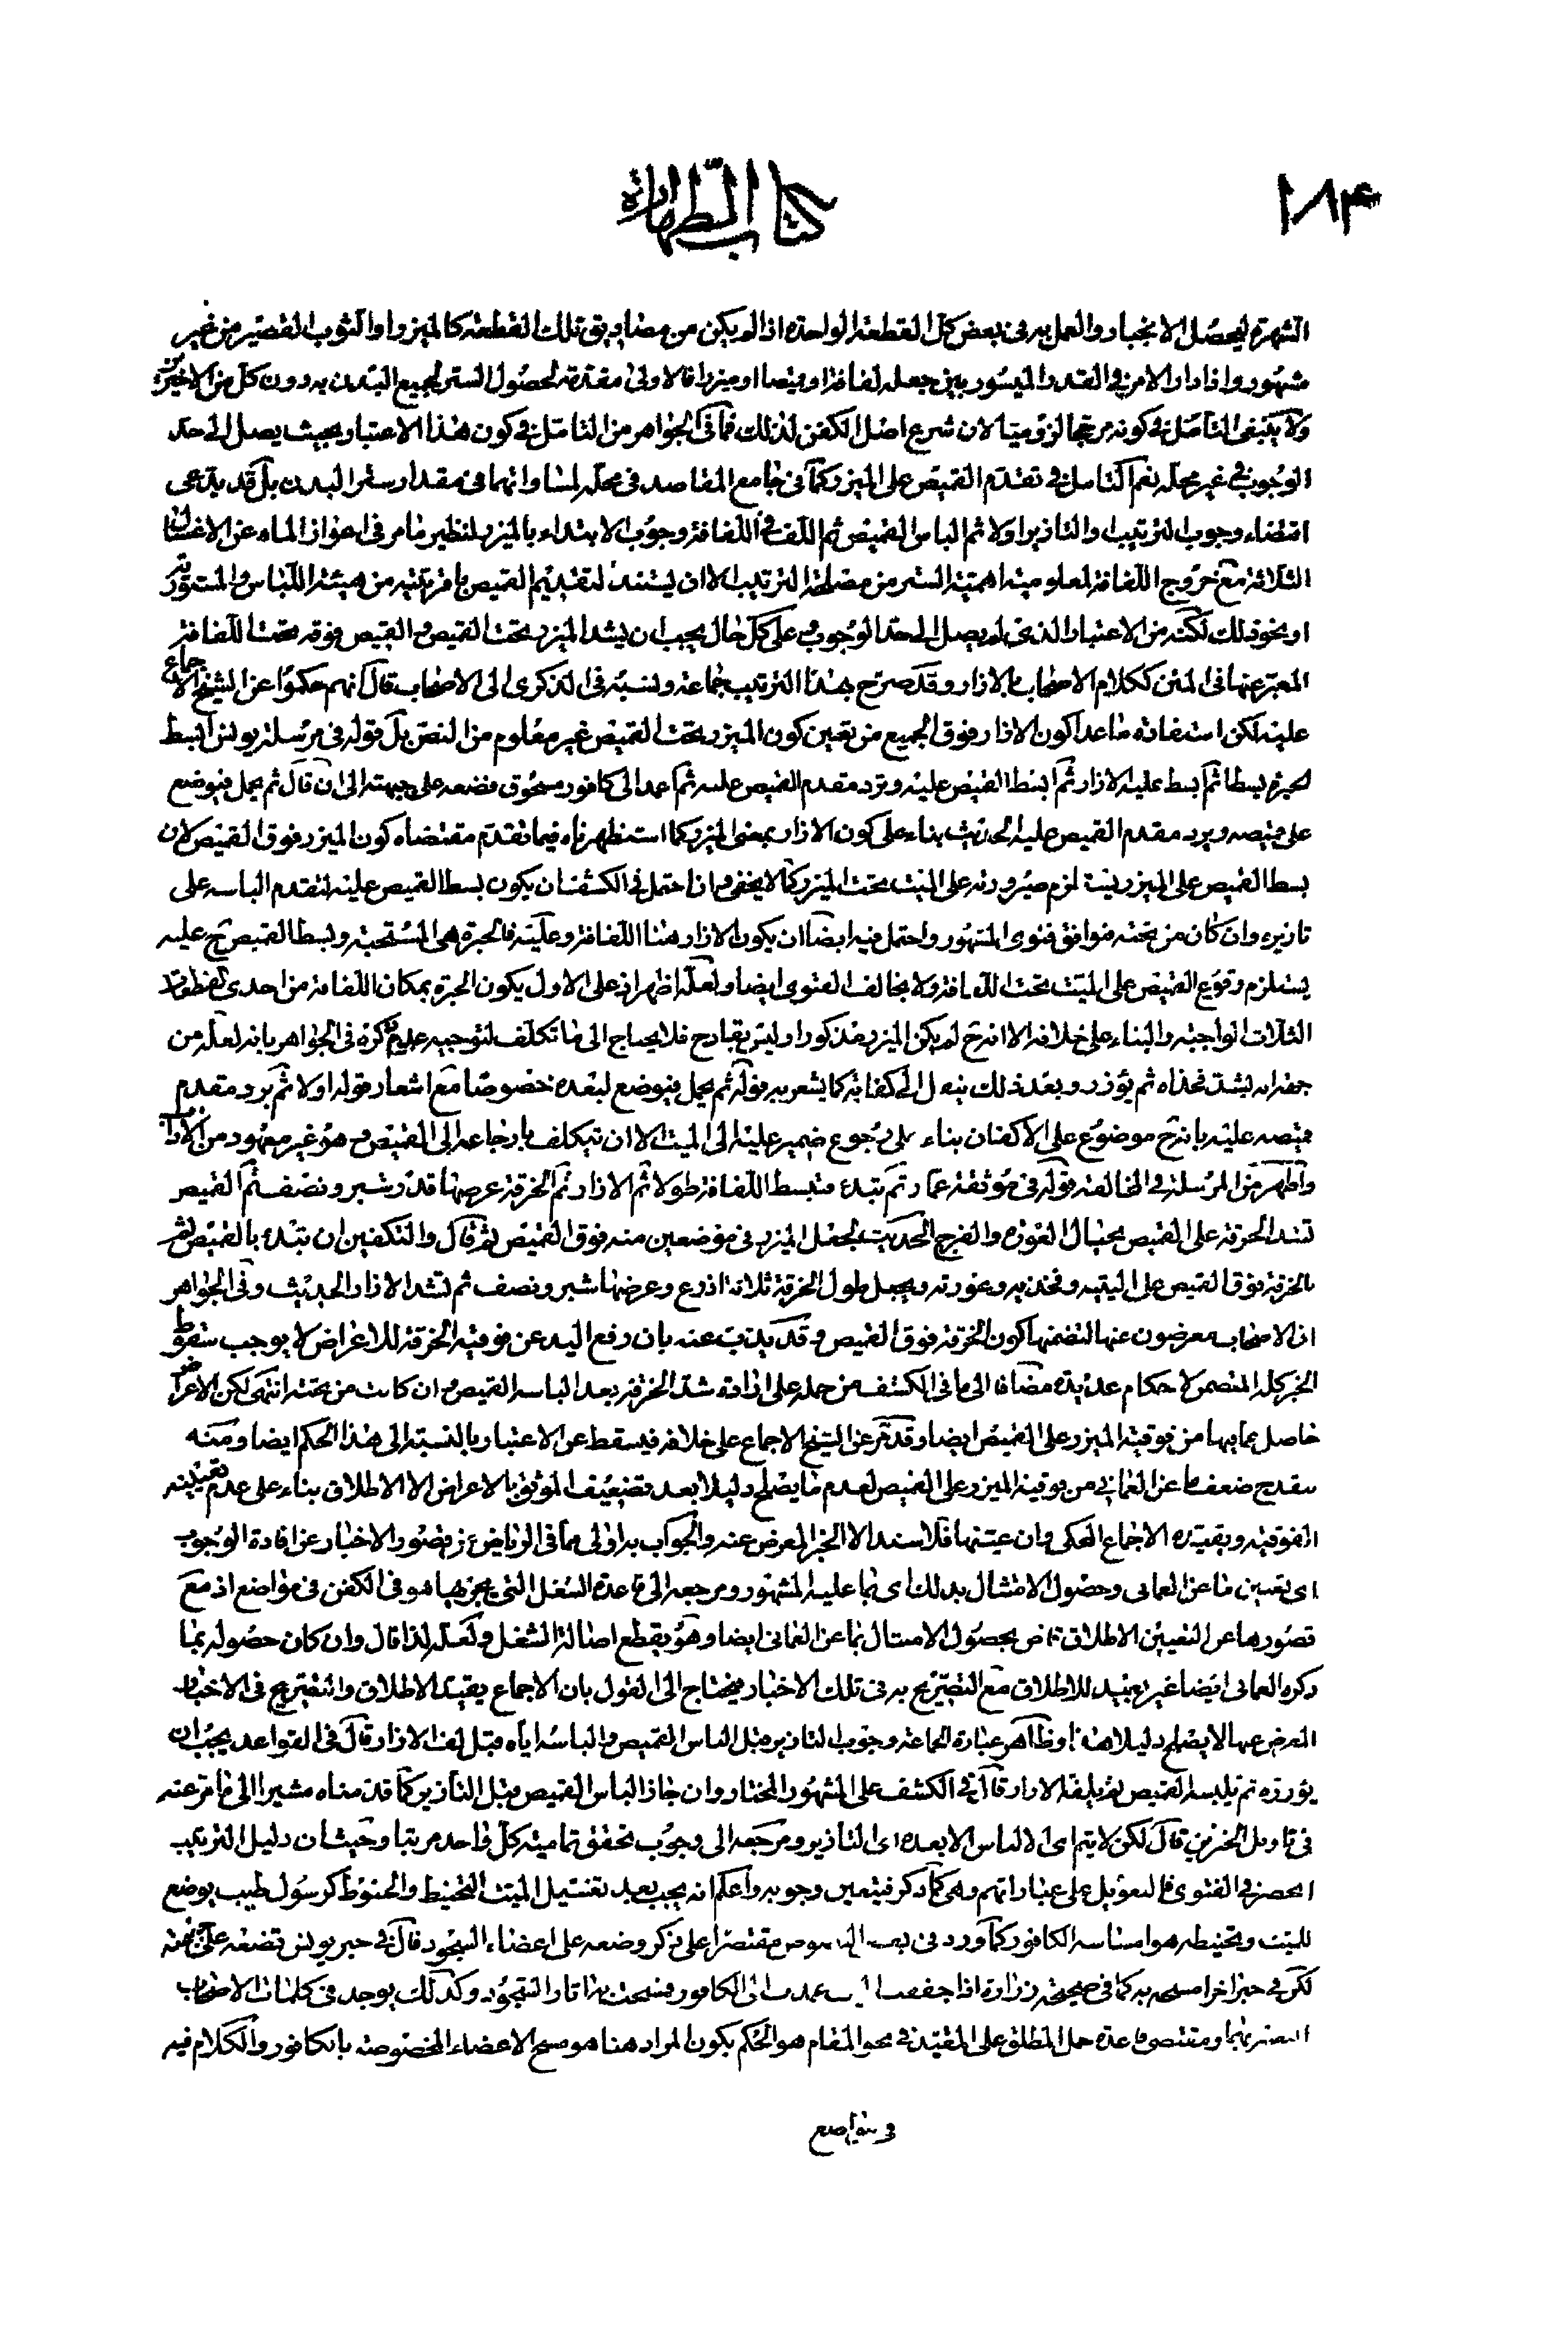 ١٨۴
كتاب الطّهارة
الشهرة ليحصل الانجبار والعمل به فى بعض كل القطعة الواحدة اذا لم يكن من مصاديق تلك القطعة كالميزر او الثوب القصير من غير
مشهور واذا دار الامر فى القدر الميسور بين جعله لفافة او قميصا او ميزرا فالاولى مقدمة لحصول الستر لجميع البدن به دون كل من الاخيرين
ولا ينبغى التأمل فى كونه مرجحا لزوميا لان شرع اصل الكفن لذلك فما فى الجواهر من التامل فى كون هذا الاعتبار بحيث يصل الى حد
الوجوب فى غير محله نعم التامل فى تقدم القميص على الميزر كما فى جامع المقاصد فى محله لمساواتهما فى مقدار ستر البدن بل قد يدعى
اقتضاء وجوب الترتيب والتازير اولا ثم الباس القميص ثم اللف فى اللفافة وجوب الابتداء بالميزر لنظير ما مر فى اعواز الماء عن الاغسال
الثلاثة مع خروج اللفافة لمعلومية اهمية الستر من مصلحة الترتيب الا ان يستند لتقديم القميص باقربيته من هيئة اللباس والمستورية
او نحو ذلك لكنه من الاعتبار الذى لم يصل الى حد الوجوب وعلى كل حال يجب ان يشد الميزر تحت القميص والقميص فوقه تحت اللفافة
المعبر عنها فى المتن ككلام الاصحاب بالازار وقد صرح بهذا الترتيب جماعة ونسبه فى الذكرى الى الاصحاب قال انهم حكوا عن الشيخ الاجماع
عليه لكن استفادة ما عدا كون الازار فوق الجميع من تعين كون الميزر تحت القميص غير معلوم من النص بل قوله فى مرسلة يونس ابسط
الحبرة بسطا ثم ابسط عليها الازار ثم ابسط القميص عليه وترد مقدم القميص عليه ثم اعمد الى كافور مسحوق فضعه على جبهته الى ان قال ثم يحمل فيوضع
على قميصه ويرد مقدم القميص عليه الحديث بناء على كون الازار بمعنى الميزر كما استظهرناه فيما تقدم مقتضاه كون الميزر فوق القميص لان
بسط القميص على الميزر يستلزم صيرورته على الميت تحت الميزر كما لا يخفى وان احتمل فى الكشف ان يكون بسط القميص عليه لتقدم الباسه على
تازيره وان كان من تحته فوافق فتوى المشهور واحتمل فيه ايضا ان يكون الازار هنا اللفافة وعليه فالحبرة هى المستحبة وبسط القميص ح عليه
يستلزم وقوع القميص على الميت تحت اللفافة ولا يخالف الفتوى ايضا ولعله اظهر اذ على الاول يكون الحبرة بمكان اللفافة من احدى القطع
الثلاث الواجبة والبناء على خلافه الا انه ح لم يكن الميزر مذكورا وليس بقادح فلا يحتاج الى ما تكلف لتوجيه عدم ذكره فى الجواهر بانه لعله من
جهة انه يشد فخذاه ثم يؤزر وبعد ذلك ينقل الى كفانه كما يشعر به قوله ثم يحمل فيوضع لبعده خصوصا مع اشعار قوله اولا ثم يرد مقدم
قميصه عليه بانه ح موضوع على الاكفان بناء على رجوع ضمير عليه الى الميت الا ان يتكلف بارجاعه الى القميص وهو غير معهود من
واظهر من المرسلة فى المخالفة قوله فى موثقة عمار ثم تبدء فتبسط اللفافة طولا ثم الازار ثم الخرقة عرضها قدر شبر ونصف ثم القميص
تشد الخرقة على القميص بحيال العورة والفرج الحديث لجعل الميزر فى موضعين منه فوق القميص ثم قال والتكفين ان تبدء بالقميص ثم
بالخرقة فوق القميص على اليتيه وفخذيه وعورته ويجعل طول الخرقة ثلاثة اذرع وعرضها شبر ونصف ثم تشد الازار الحديث وفى الجواهر
ان الاصحاب معرضون عنها لتضمنها كون الخرقة فوق القميص وقد يذب عنه بان رفع اليد عن فوقية الخرقة للاعراض لا يوجب سقوط
الخبر كله المتضمن لاحكام عديدة مضافا الى ما فى الكشف من حمله على ارادة شد الخرقة بعد الباسه القميص وان كانت من تحته انتهى لكن الاعراض
حاصل عما فيها من فوقية الميزر على القميص ايضا وقد مر عن الشيخ الاجماع على خلافه فيسقط عن الاعتبار بالنسبة الى هذا الحكم ايضا ومنه
ينقدح ضعف ما عن العمانى من فوقية الميزر على القميص لعدم ما يصلح دليلا بعد تضعيف الموثق بالاعراض الا الاطلاق بناء على عدم تعيينه
الفوقية ويقيده الاجماع المحكى وان عيتنها فلا سند الا الخبر المعرض عنه والجواب به اولى مما فى الرياض من قصور الاخبار عن افادة الوجوب
اى تعيين ما عن العمانى وحصول الامتثال بذلك اى بما عليه المشهور ومرجعه الى قاعدة الشغل التى يجريها هو فى الكفن فى مواضع اذ مع
قصورها عن التعيين الاطلاق قاض بحصول الامتثال بما عن العمانى ايضا وهو يقطع اصالة الشغل ولعله لذا قال وان كان حصوله بما
ذكره العمانى ايضا غير بعيد للاطلاق مع التصريح به فى تلك الاخبار فيحتاج الى القول بان الاجماع يقيد الاطلاق والتصريح فى الاخبار
المعرض عنها لا يصلح دليلا هذا وظاهر عبارة الجماعة وجوب التازير قبل الباس القميص والباسه اياه قبل لف الازار قال فى القواعد يجب ان
يؤزره ثم يلبسه القميص ثم يلفه الازار قال فى الكشف على المشهور المختار وان جاز الباس القميص قبل التأزير كما قدمناه مشيرا الى ما مر عنه
فى تاويل الخبرين قال لكن لا يتم اى الالباس الا بعده اى التازير ومرجعه الى وجوب تحقق تمامية كل واحد مرتبا وحيث ان دليل الترتيب
انحصر فى الفتوى فالتعويل على عباراتهم وهى كما ذكر فيتعين وجوبه واعلم انه يجب بعد تغسيل الميت التحنيط والحنوط كرسول طيب يوضع
للميت وتحنيطه هو امساسه الكافور كما ورد فى بعض النصوص مقتصرا على ذكر وضعه على اعضاء السجود قال فى خبر يونس تضعه على جبهته
لكن فى خبر اخر امسحه به كما فى صحيحة زرارة اذا جففت الميت عمدت الى الكافور فمسحت به اثار السجود وكذلك يوجد فى كلمات الاصحاب
التعبير بهما ومقتضى قاعدة حمل المطلق على المقيد فى نحو المقام هو الحكم بكون المراد هنا هو مسح الاعضاء المخصوصة بالكافور والكلام فيه
فى مواضع